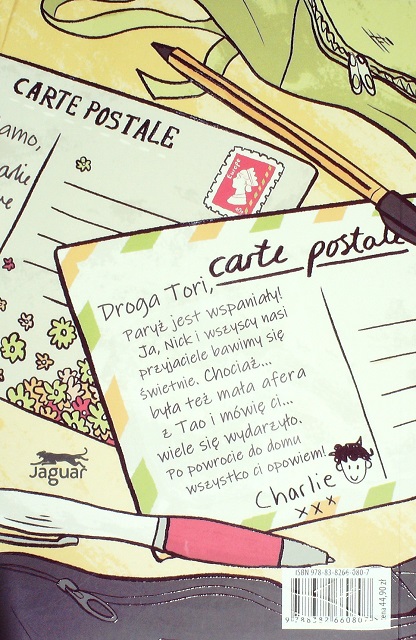 CARTE POSTALE
Europe
carte postale
Droga Tori,
Paryż jest wspaniały!
Ja, Nick i wszyscy nasi
przyjaciele bawimy się
świetnie. Chociaż...
była też mała afera
z Tao i mówię ci...
wiele się wydarzyło.
Po powrocie do domu
wszystko ci opowiem!
Charlie
xxx
Jaguar
ISBN 978-83-8266-080-7
cena 44,90 zł